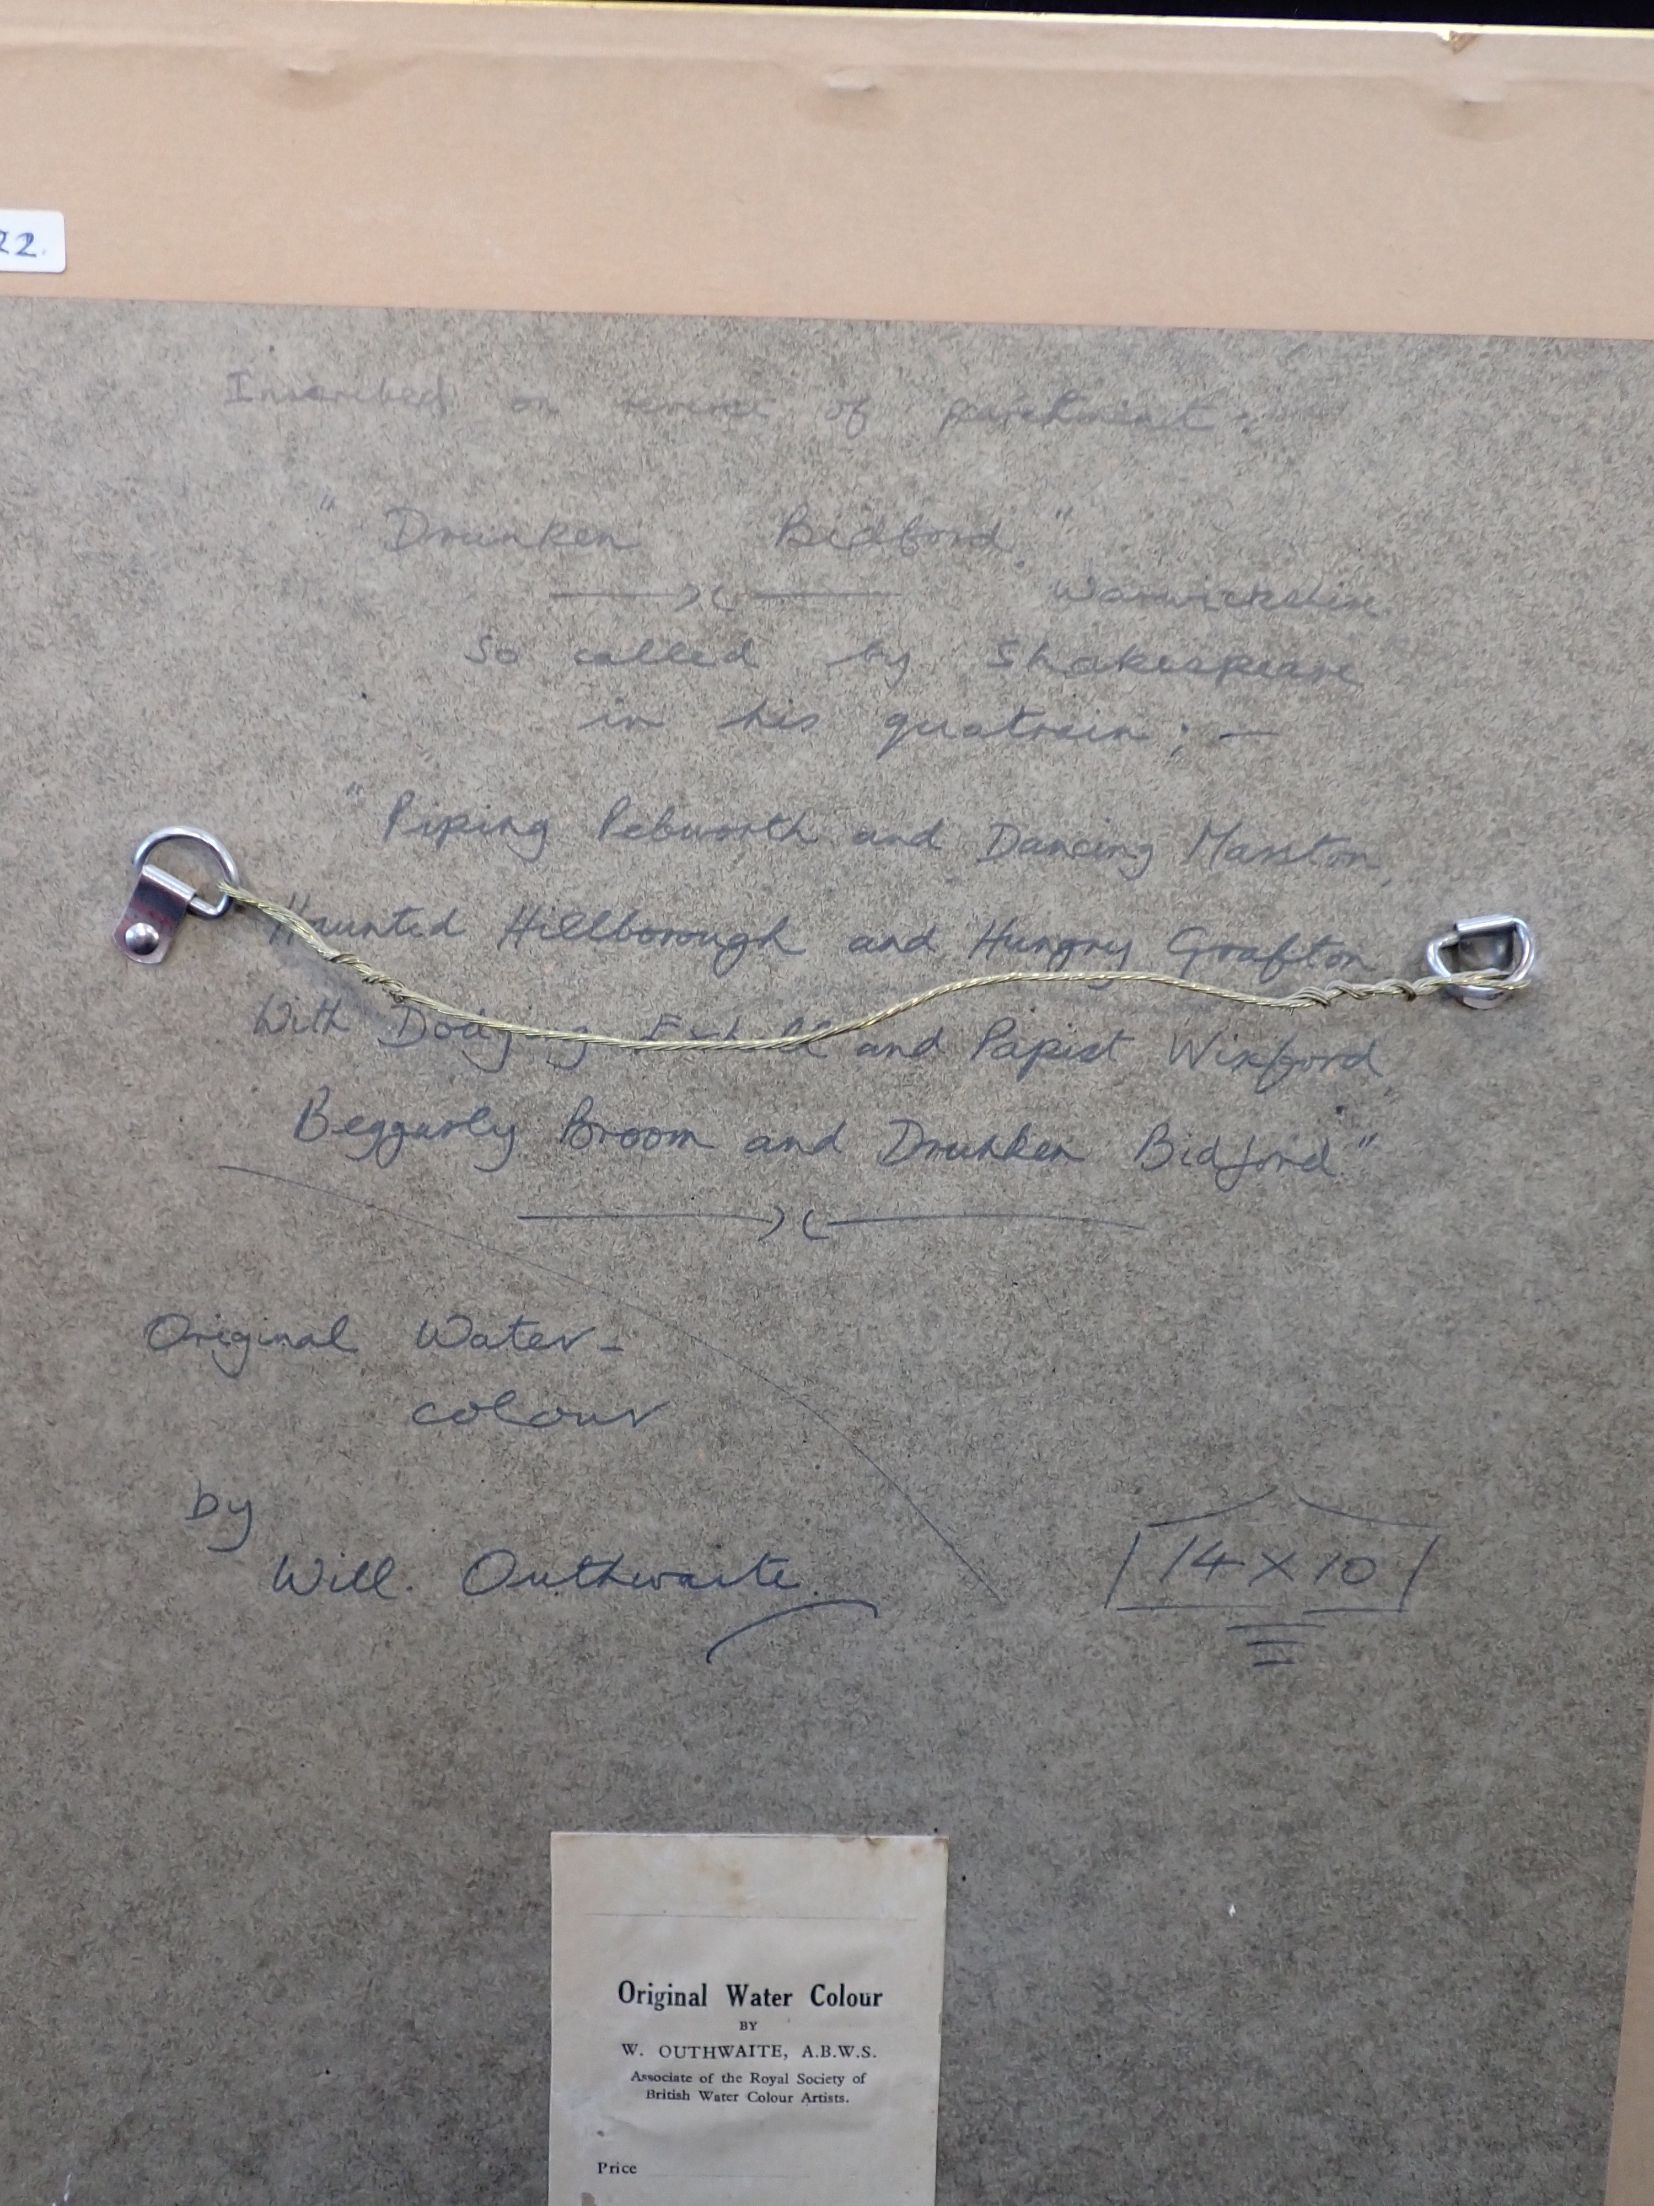 22.
Inscribed on reverse of parchment:
"Drunken Bidford."
Warwickshire
So called by Shakespeare
in his quatrain; —
"Piping Pebworth and Dancing Marston,
Haunted Hillborough and Hungry Grafton
With Dodging Exhall and Papist Wixford,
Beggarly Broom and Drunken Bidford."
Original Water-
colour
by
Will. Outhwaite.
14 x 10
Original Water Colour
BY
W. OUTHWAITE, A.B.W.S.
Associate of the Royal Society of
British Water Colour Artists.
Price